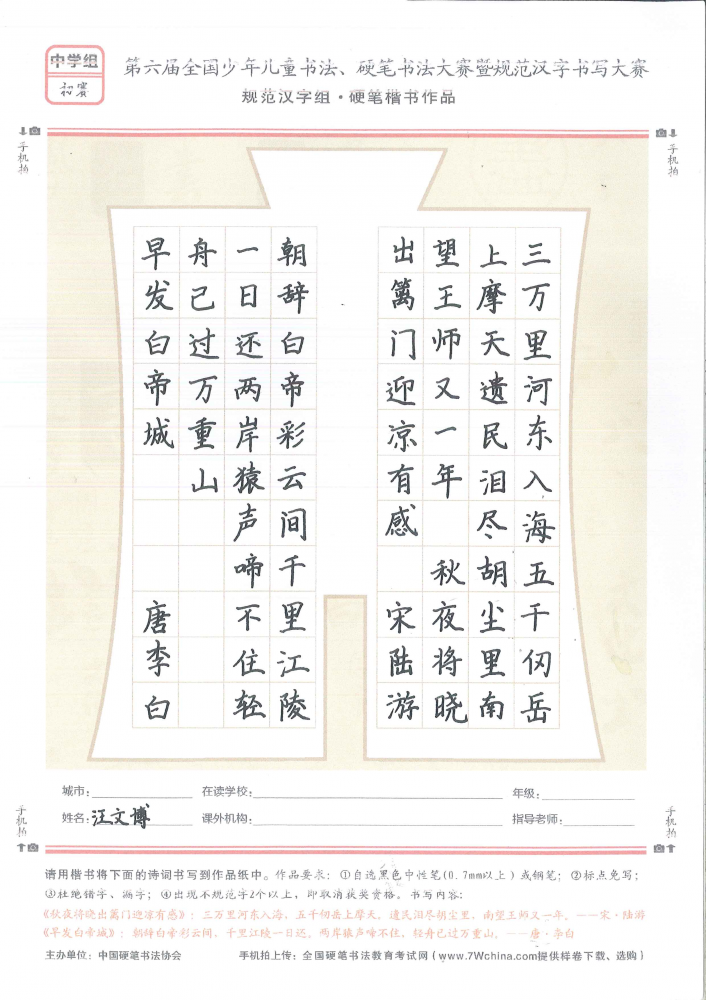 中学组
初赛
第六届全国少年儿童书法、硬笔书法大赛暨规范汉字书写大赛
规范汉字组·硬笔楷书作品
手机拍
手机拍
三万里河东入海五千仞岳
上摩天遗民泪尽胡尘里南
望王师又一年 秋夜将晓
出篱门迎凉有感 宋陆游
朝辞白帝彩云间千里江陵
一日还两岸猿声啼不住轻
舟已过万重山
早发白帝城 唐李白
城市: 在读学校: 年级:
姓名: 汪文博 课外机构: 指导老师:
手机拍
手机拍
请用楷书将下面的诗词书写到作品纸中。作品要求：①自选黑色中性笔(0.7mm以上)或钢笔；②标点免写；
③杜绝错字、漏字；④出现不规范字2个以上，即取消获奖资格。书写内容：
《秋夜将晓出篱门迎凉有感》：三万里河东入海，五千仞岳上摩天。遗民泪尽胡尘里，南望王师又一年。——宋·陆游
《早发白帝城》：朝辞白帝彩云间，千里江陵一日还。两岸猿声啼不住，轻舟已过万重山。——唐·李白
主办单位：中国硬笔书法协会 手机拍上传：全国硬笔书法教育考试网(www.7Wchina.com提供样卷下载、选购)